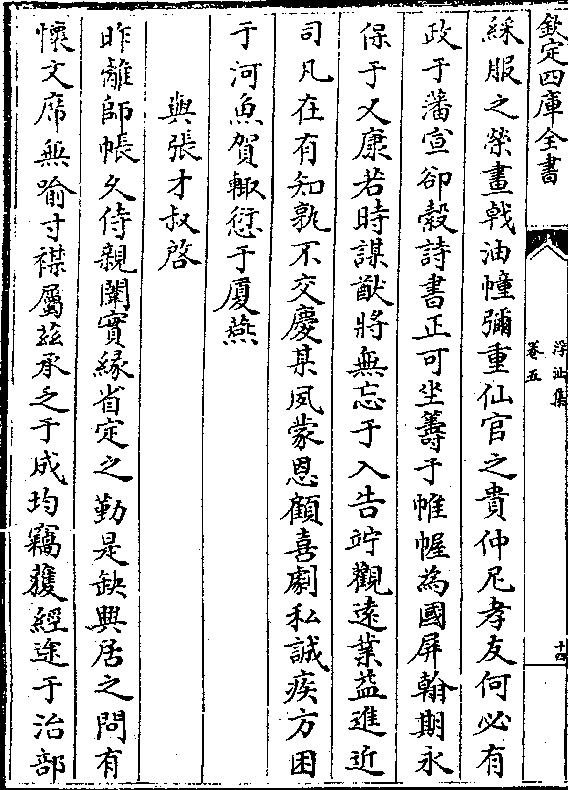 欽定四庫全書
浮沚集
卷五
十四
綵服之榮畫㦸油幢彌重仙官之貴仲尼孝友何必有
政于藩宣卻縠詩書正可坐籌于帷幄為國屏翰期永
保于乂康若時謀猷將無忘于入告竚觀遠業益進近
司凡在有知孰不交慶某夙蒙恩顧喜劇私誠疾方困
于河魚賀輙愆于厦燕
與張才叔啓
昨離師帳久侍親闈實緣省定之勤是缺興居之問有
懷文席無喻寸襟屬兹承乏于成均竊獲經途于治部